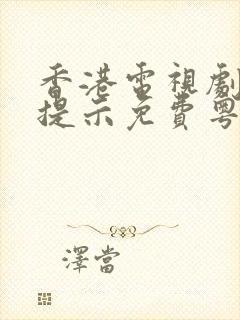 香港電視劇
提示免費粵
澤當